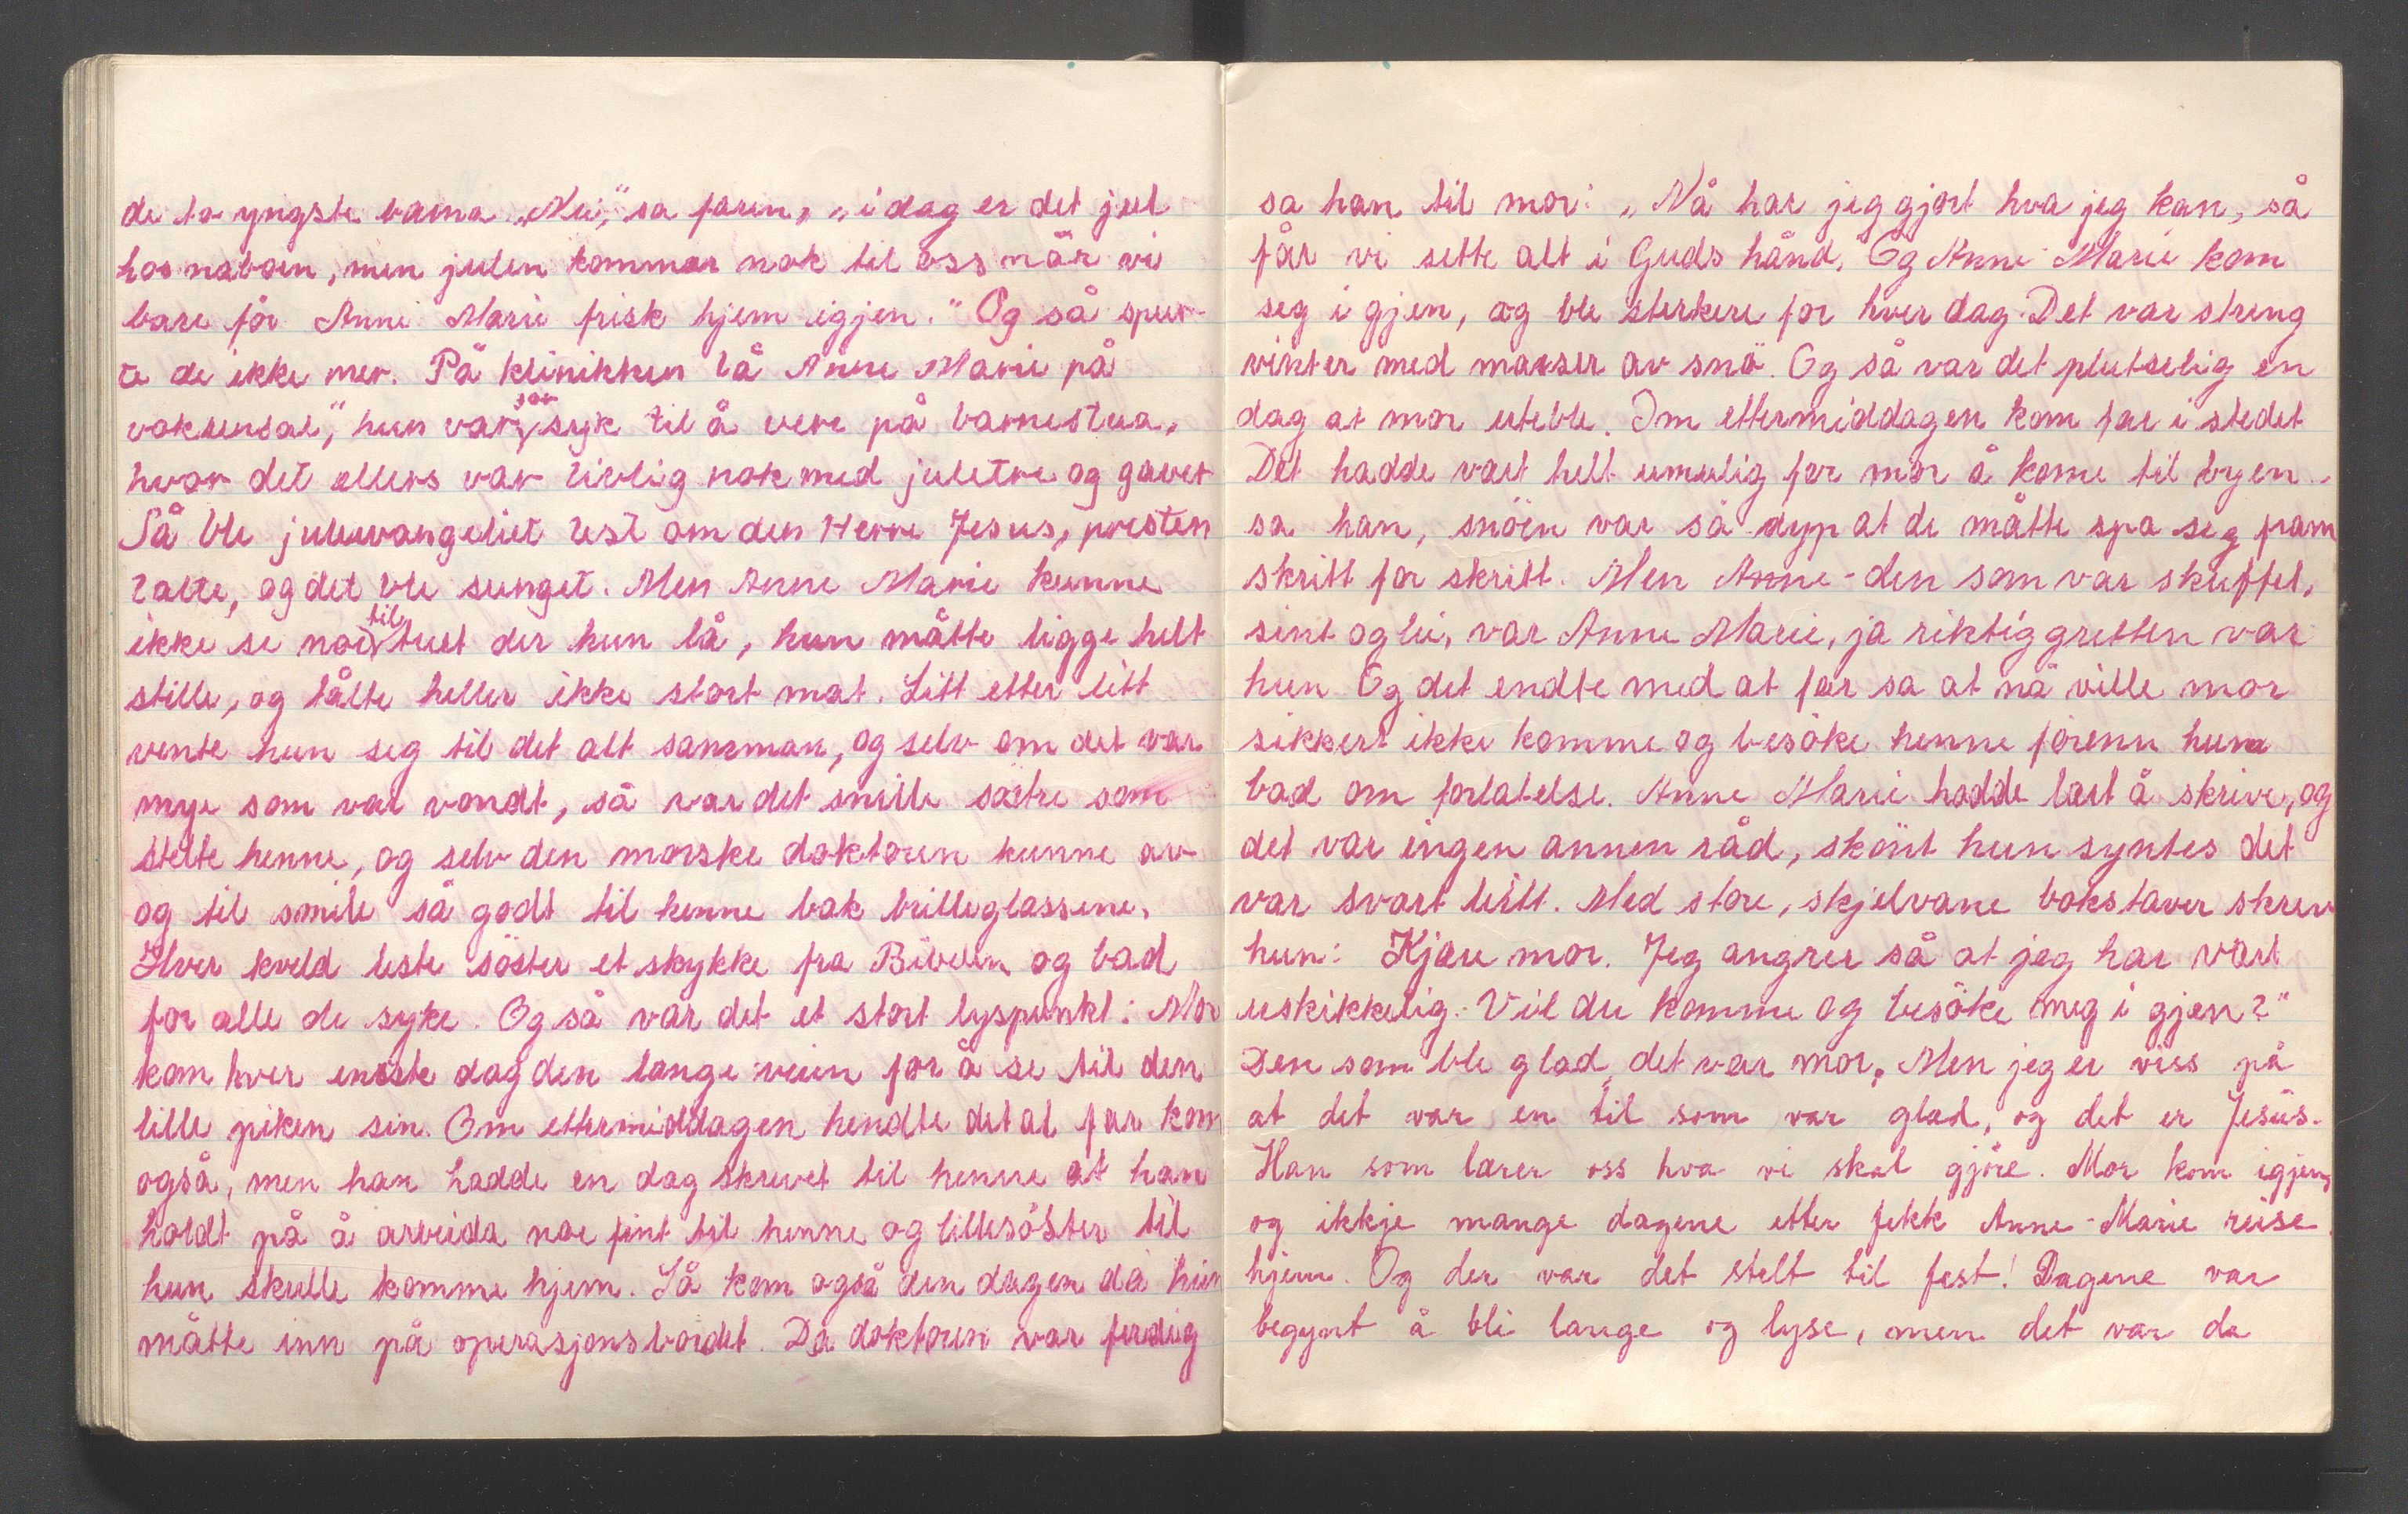 de to yngste barna „Nei," sa faren, „i dag er det jul
hos naboen, men julen kommer nok til oss når vi
bare får Anne Marie frisk hjem igjen." Og så spur-
te de ikke mer. På klinikken lå Anne Marie på
voksensal," hun var for syk til å vere på barnestua,
hvor det ellers var livlig nok med juletre og gaver
Så ble juleevangeliet lest om den Herre Jesus, presten
talte, og det ble sunget. Men Anne Marie kunne
ikke se noe til treet der hun lå, hun måtte ligge helt
stille, og tålte heller ikke stort mat. Litt etter litt
vente hun seg til det alt samman, og selv om det var
mye som var vondt, så var det snille søstre som
stelte henne, og selv den morske doktoren kunne av
og til smile så godt til henne bak brilleglassene.
Hver kveld leste söster et stykke fra Bibelen og bad
for alle de syke. Og så var det et stort lyspunkt: Mor
kom hver eneste dag den lange veien for å se til den
lille piken sin. Om ettermiddagen hendte det at far kom
også, men han hadde en dag skrevet til henne at han
holdt på å arbeida noe fint til henne og lillesöster til
hun skulle komme hjem. Så kom også den dagen da hun
måtte inn på operasjonsbordet. Da doktoren var ferdig
sa han til mor: „Nå har jeg gjort hva jeg kan, så
får vi sette alt i Guds hånd." Og Anne Marie kom
seg i gjen, og ble sterkere for hver dag. Det var streng
vinter med masser av snö. Og så var det plutselig en
dag at mor uteble. Om ettermiddagen kom far i stedet
Det hadde vært helt umulig for mor å kome til byen.
sa han, snöen var så dyp at de måtte spa seg fram
skritt for skritt. Men Anne - den som var skuffet,
sint og lei, var Anne Marie, ja riktig gretten var
hun Og det endte med at far sa at nå ville mor
sikkert ikke komme og besöke henne förenn hun
bad om forlatelse. Anne Marie hadde lært å skrive, og
det var ingen annen råd, skönt hun syntes det
var svært leitt. Med store, skjelvane bokstaver skrev
hun: Kjære mor. Jeg angrer så at jeg har vært
uskikkelig. Vil du komme og besöke meg i gjen?"
Den som ble glad, det var mor. Men jeg er viss på
at det var en til som var glad, og det er Jesus.
Han som lærer oss hva vi skal gjöre. Mor kom igjen,
og ikkje mange dagene etter fekk Anne-Marie reise
hjem. Og der var det stelt til fest! Dagene var
begynt å bli lange og lyse, men det var da